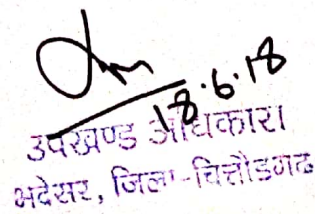 18.6.18
उपखण्ड अधिकारी
भदेसर, जिला-चित्तौडगढ